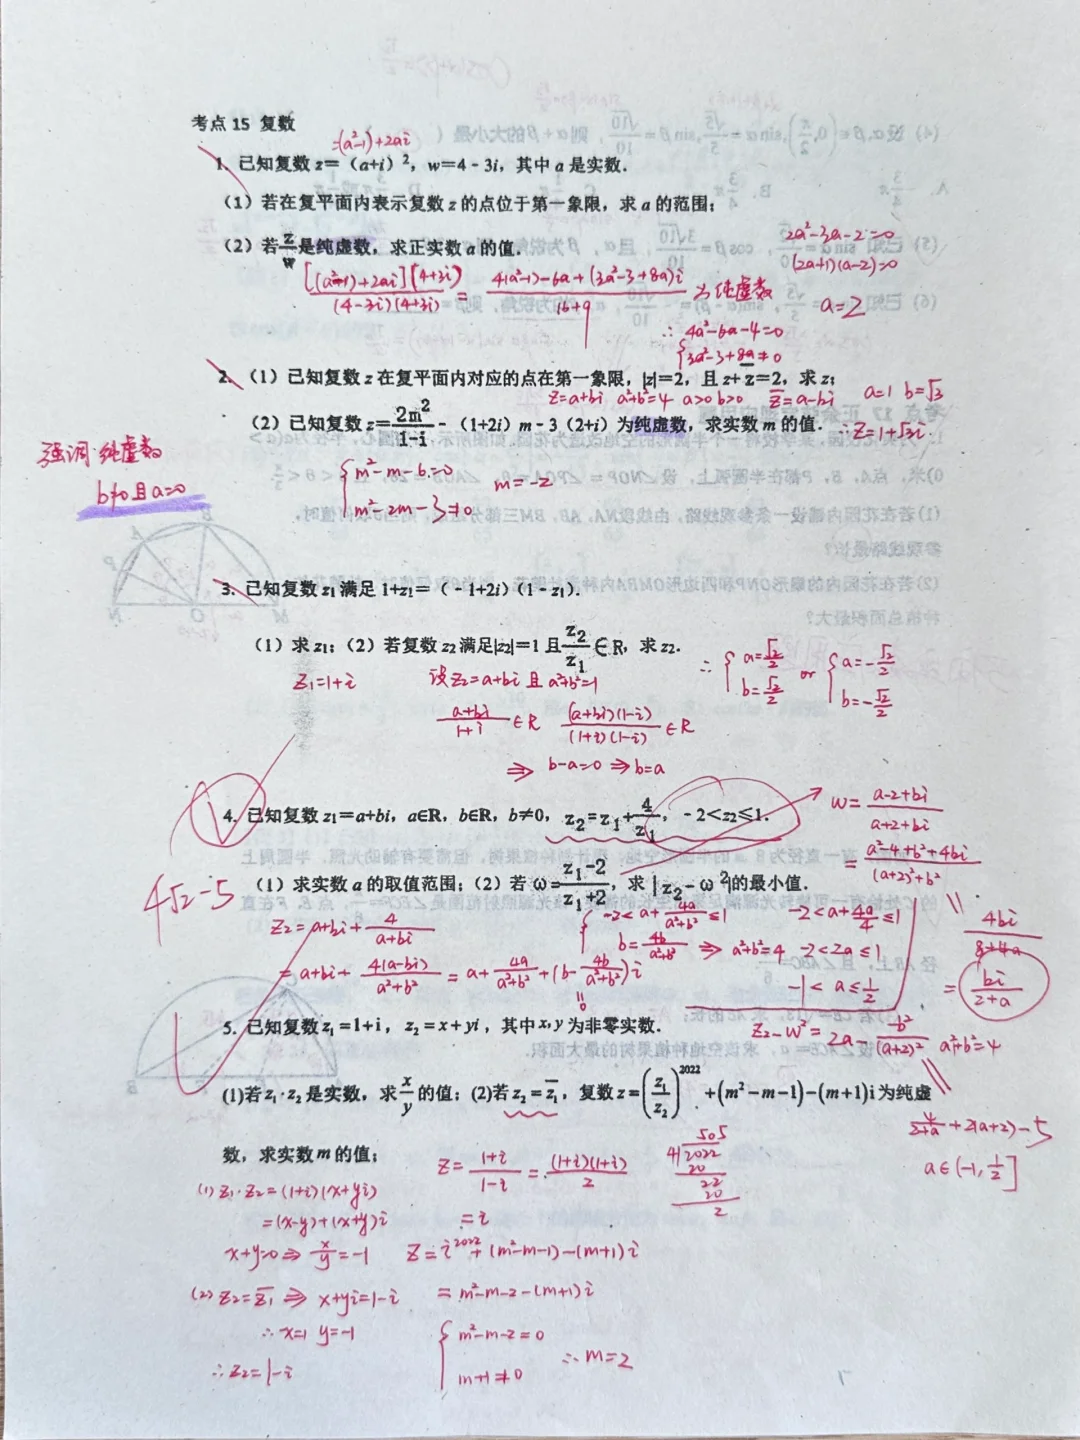 考点 15 复数
=(a²-1)+2ai
1. 已知复数 z=（a+i）²，w=4-3i，其中 a 是实数.
（1）若在复平面内表示复数 z 的点位于第一象限，求 a 的范围；
（2）若z/w是纯虚数，求正实数 a 的值.
2a²-3a-2=0
(2a+1)(a-2)=0
a=2
[(a²-1)+2ai](4+3i)/(4-3i)(4+3i) = 4(a²-1)-6a+(3a²-3+8a)i/16+9 为纯虚数
∴ 4a²-6a-4=0
3a²-3+8a≠0
2.（1）已知复数 z 在复平面内对应的点在第一象限，|z|=2，且 z+z̄=2，求 z；
z=a+bi a²+b²=4 a>0 b>0 z̄=a-bi a=1 b=√3
（2）已知复数 z=2m²/1-i -（1+2i）m-3（2+i）为纯虚数，求实数 m 的值.
∴z=1+√3i
强调:纯虚数
b≠0且a=0
m²-m-6=0
m²-2m-3≠0
m=-2
3. 已知复数 z₁ 满足 1+z₁=（-1+2i）(1-z₁).
（1）求 z₁；（2）若复数 z₂ 满足|z₂|=1 且z₂/z₁∈R，求 z₂.
z₁=1+i 设z₂=a+bi 且 a²+b²=1
∴ a=√2/2 b=√2/2 or a=-√2/2 b=-√2/2
a+bi/1+i ∈R (a+bi)(1-i)/(1+i)(1-i) ∈R
⇒ b-a=0 ⇒ b=a
4. 已知复数 z₁=a+bi，a∈R，b∈R，b≠0，z₂=z₁+4/z₁，-2<z₂≤1.
（1）求实数 a 的取值范围；（2）若 ω=z₁-2/z₁+2，求｜z₂-ω²|的最小值.
4√2-5
w=a-2+bi/a+2+bi
=a²-4+b²+4bi/(a+2)²+b²
4bi/8+4a
=bi/2+a
z₂=a+bi+4/a+bi
=a+bi+4(a-bi)/a²+b²=a+4a/a²+b²+(b-4b/a²+b²)i
0
-2<a+4a/a²+b²≤1
b=4b/a²+b² ⇒ a²+b²=4
-2<a+4a/4≤1
-2<2a≤1
-1<a≤1/2
z₂-w²=2a-b²/(a+2)² a²+b²=4
4/2+a+2(a+2)-5
a∈(-1,1/2]
5. 已知复数 z₁=1+i，z₂=x+yi，其中 x,y 为非零实数.
(1)若 z₁·z₂ 是实数，求x/y的值；(2)若 z₂=z̄₁，复数 z=(z₁/z₂)²⁰²²+(m²-m-1)-(m+1)i 为纯虚
数，求实数 m 的值；
z=1+i/1-i=(1+i)(1+i)/2
=i
505
4 2022
20
22
20
2
(1) z₁·z₂=(1+i)(x+yi)
=(x-y)+(x+y)i
x+y=0⇒x/y=-1
z=i²⁰²²+(m²-m-1)-(m+1)i
(2) z₂=z̄₁ ⇒ x+yi=1-i
=m²-m-2-(m+1)i
∴x=1 y=-1
∴z₂=1-i
m²-m-2=0
m+1≠0
∴m=2